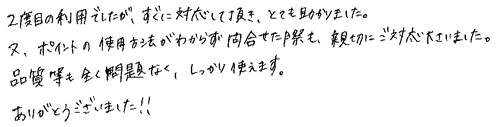 2度目の利用でしたが、すぐに対応して頂き、とても助かりました。
又、ポイントの使用方法がわからず問合せた際も、親切にご対応下さいました。
品質等も全く問題なく、しっかり使えます。
ありがとうございました!!